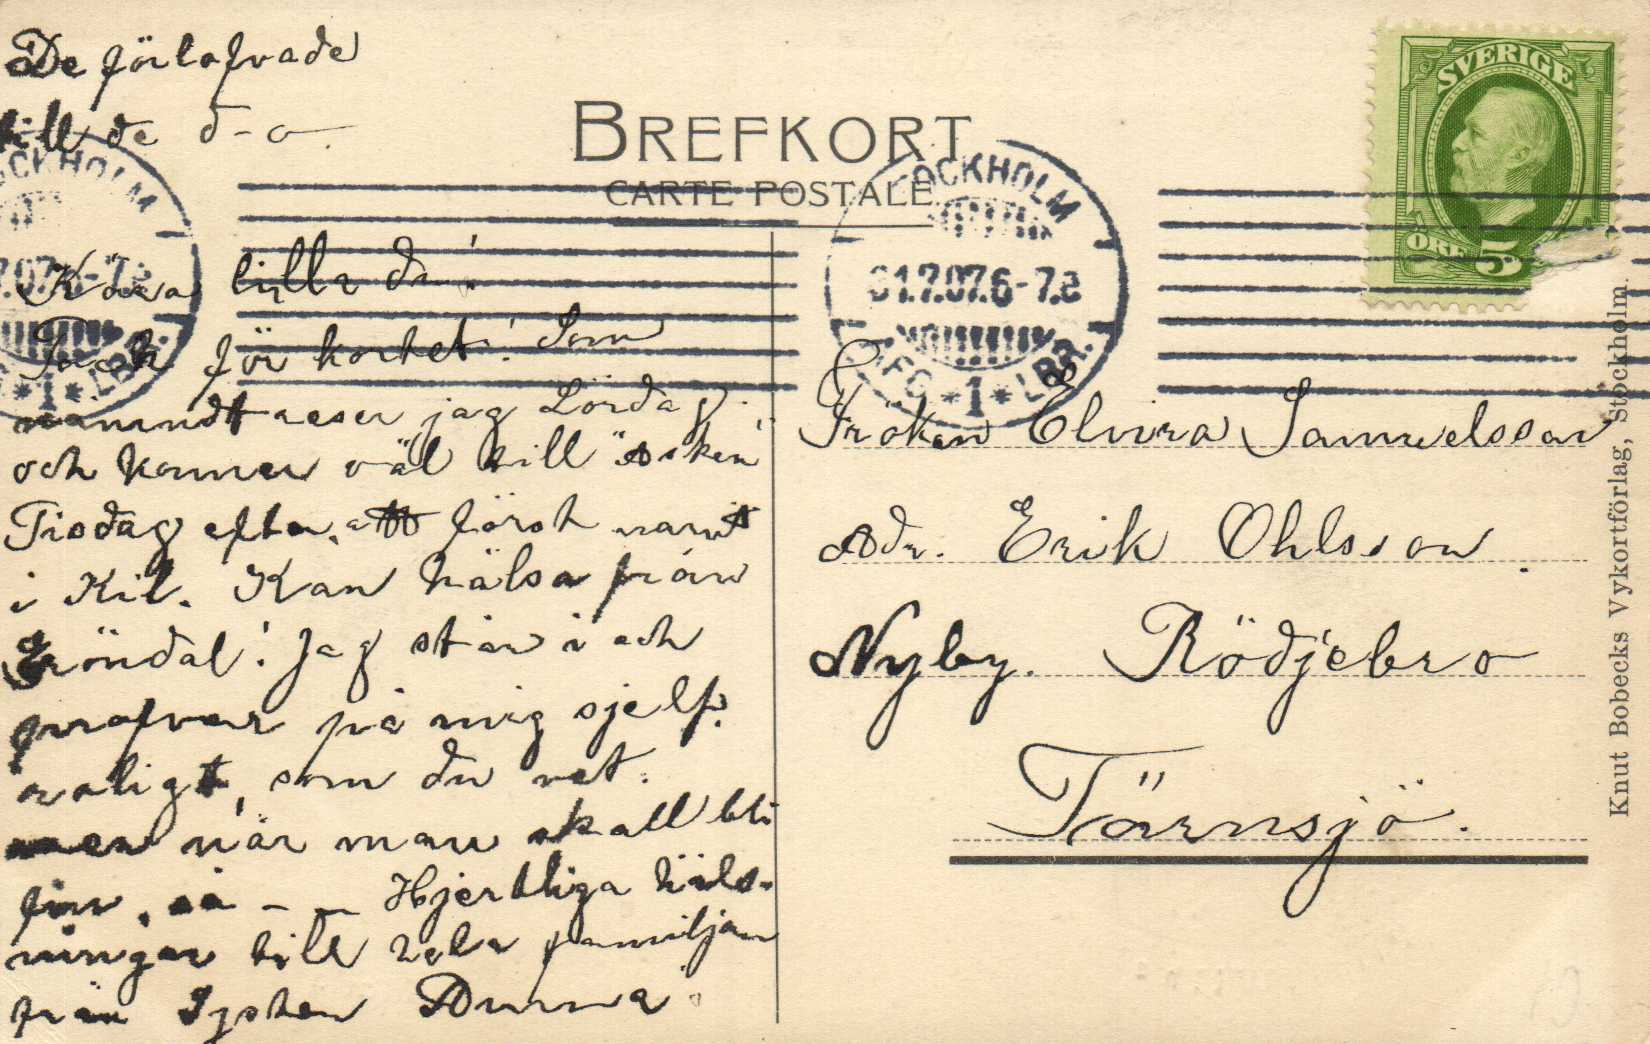 De förlofvade
till de d-o
BREFKORT
CARTE POSTALE.
SVERIGE
ÖRE 5
STOCKHOLM
31.7.07.6-7.e
*1* LBR.
Kära lilla du!
Tack för kortet! Som
nämndt reser jag Lördag
och kommer väl till "öcken"
Tisdag efter att först varit
i Kil. Kan hälsa från
Gröndal! Jag står i och
på mig sjelf.
som du vet.
men när man skall bli
fin, så - - Hjertliga häls-
ningar till hela familjen
från Syster Anna.
Fröken Elvira Samuelsson
Adr. Erik Ohlsson.
Nyby. Rödjebro
Tärnsjö.
Knut Bobecks Vykortförlag, Stockholm.